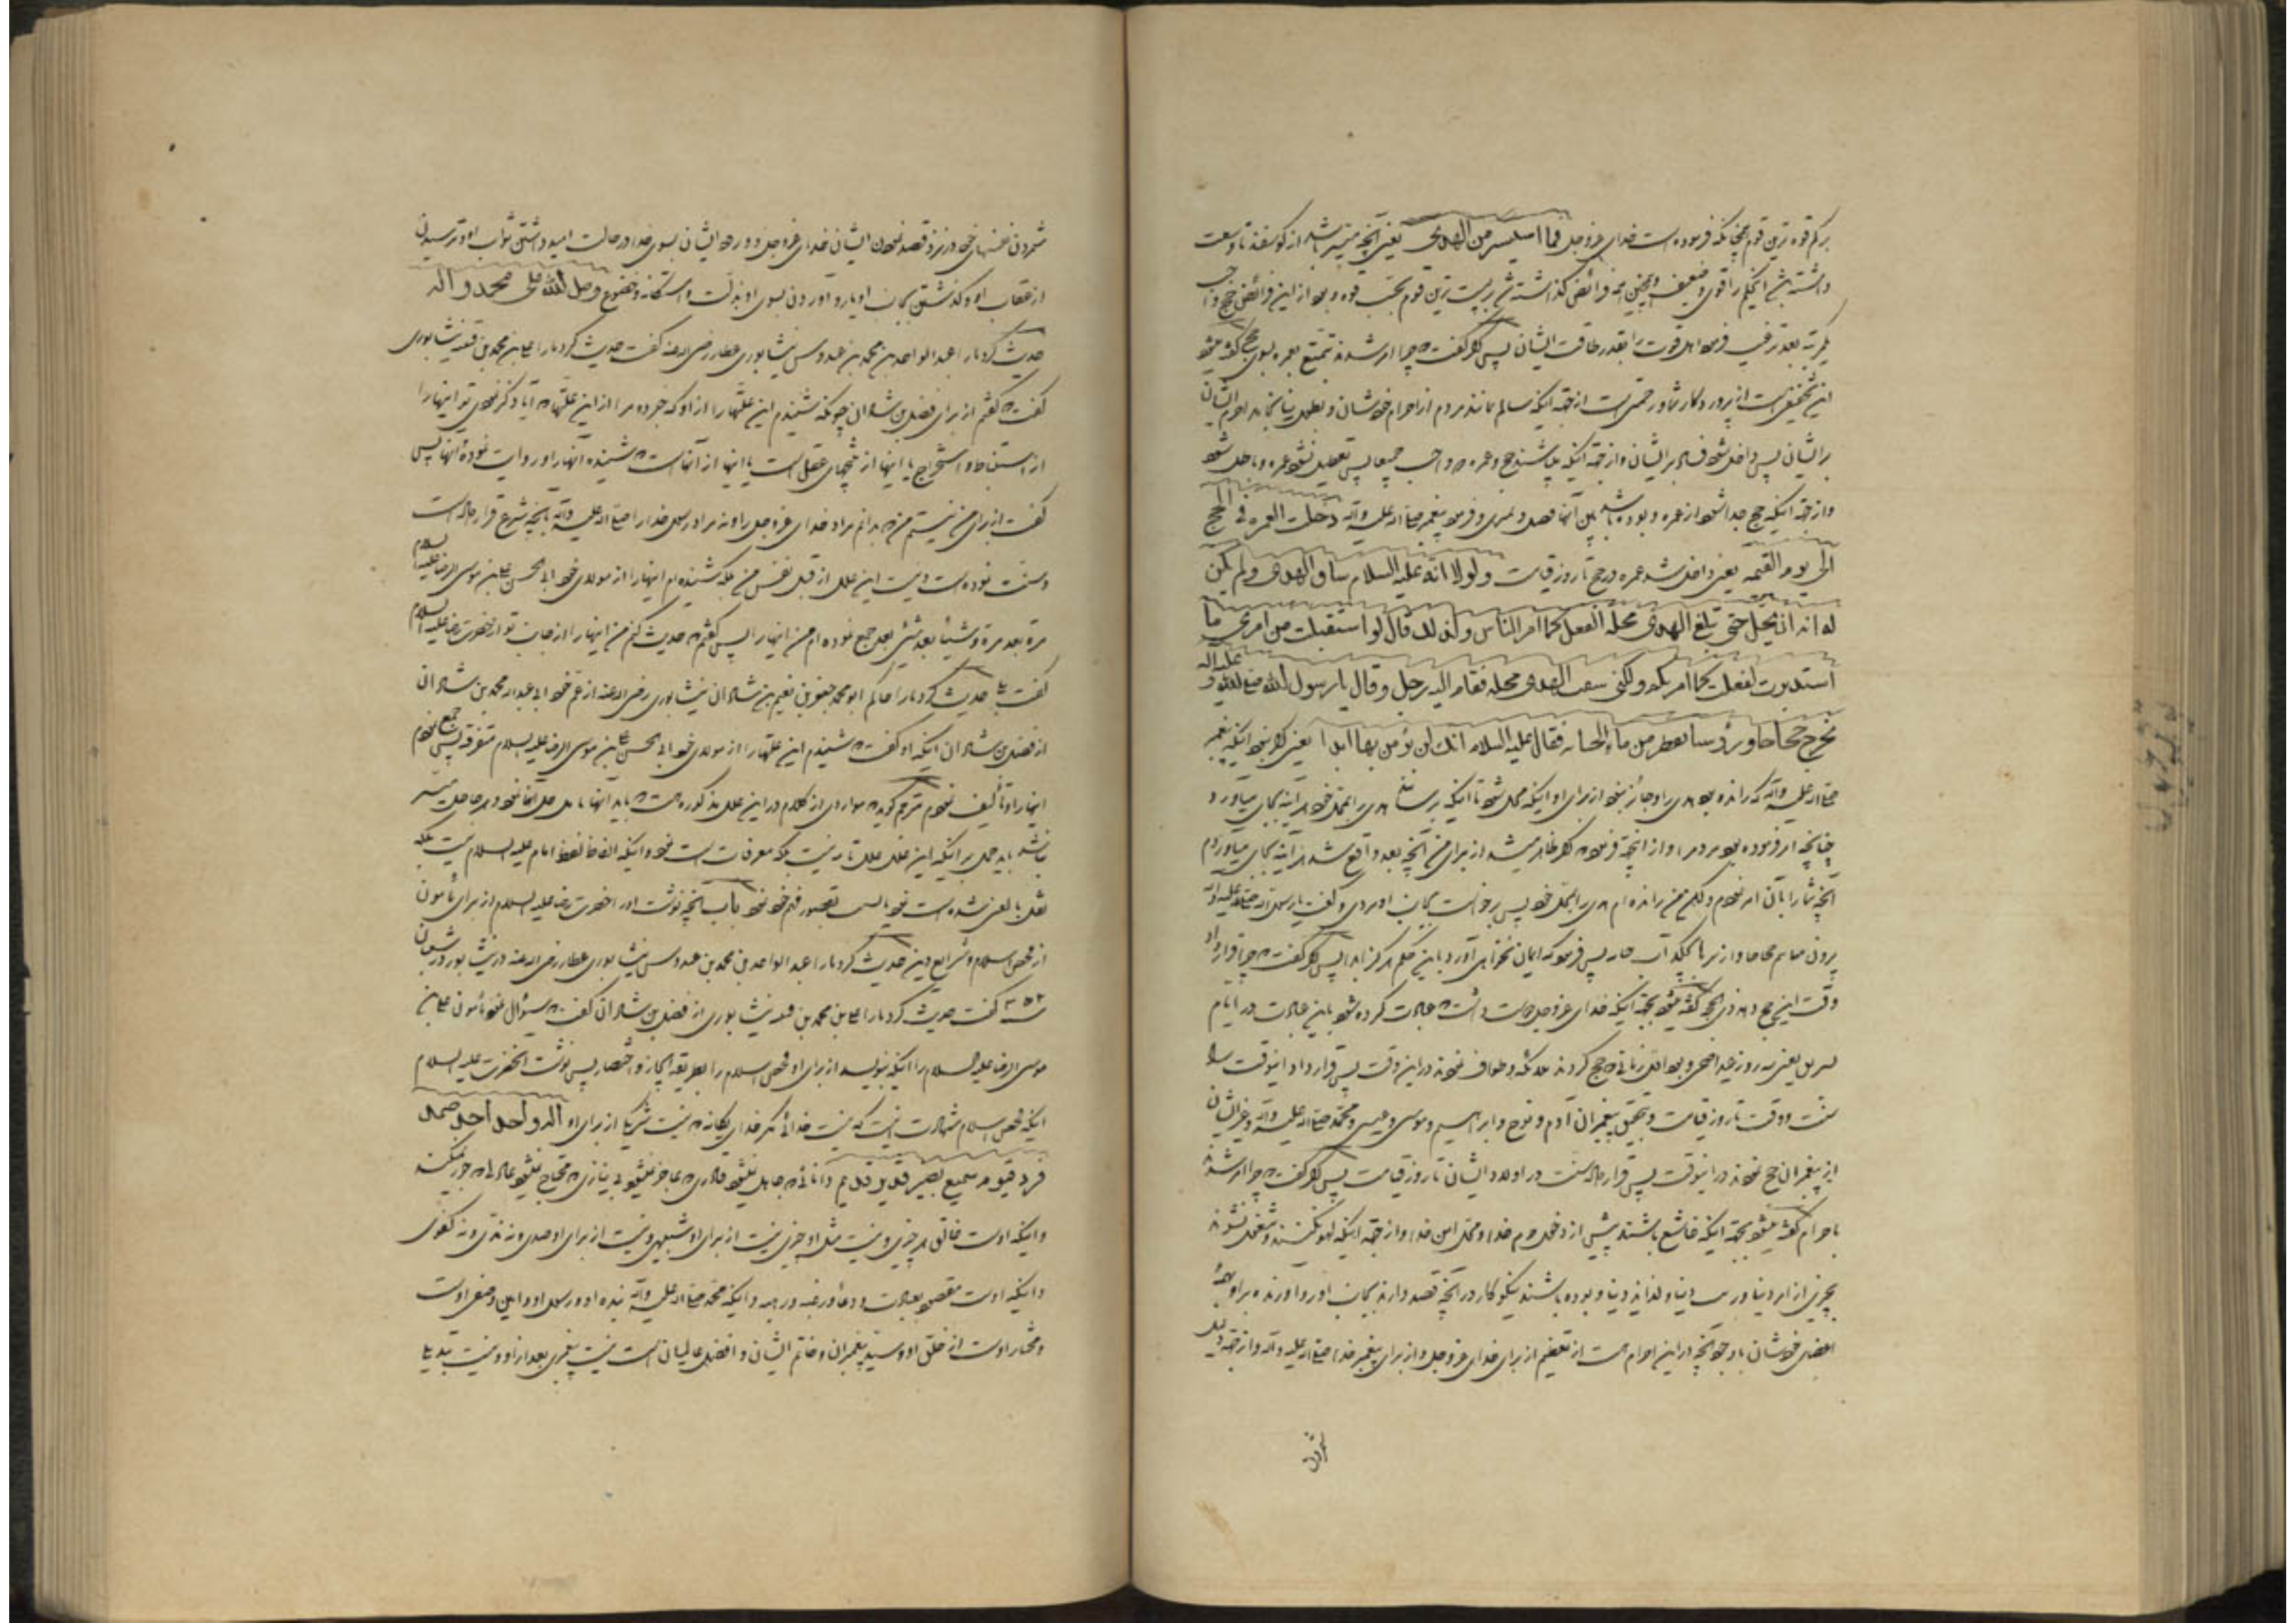 بر کم قوه ترین قوم همچنانکه فرموده است خدای عزوجل فما استیسر من الهدی یعنی آنچه میسر باشد از گوسفند تا وسعت
داشته باشد قوی و ضعیف و همچنین همه فرائض گذاشته شد بر پست ترین قوم بحسب قوه و بود از این فرائض حج واجب
یکمرتبه بعد ترغیب فرمود اهل قوت را بقدر طاقت ایشان پس اگر گفت که چرا امر شدند بتمتع بعمره بسوی حج گفته میشود
این تخفیفی است از پروردگار شما و رحمتی است از جهة اینکه سالم بمانند مردم از احرام خودشان و بطول نینجامد احرام ایشان
بر ایشان پس داخل شود فساد بر ایشان و از جهة اینکه باشند حج و عمره دو واجب جمیعا پس تعطیل نشود عمره و باطل نشود
و از جهة اینکه حج جدا شود از عمره و بوده باشد بین آنها فصل و تمیزی و فرمود پیغمبر صلی الله علیه وآله دخلت العمرة فی الحج
الی یوم القیمه یعنی داخل شد عمره در حج تا روز قیامت ولولا انه علیه السلام ساق الهدی ولم یکن
له ان یحل حتی تبلغ الهدی محله لفعل کما امر الناس ولذلک قال لو استقبلت من امری ما
استدبرت لفعلت کما امرتکم ولکنی سقت الهدی محله فقام الیه رجل وقال یا رسول الله صلی الله علیه وآله
نخرج حجاجا ورؤسنا تقطر من ماء الجنابه فقال علیه السلام انک لن تؤمن بها ابدا یعنی اگر نبود اینکه پیغمبر
صلی الله علیه وآله که رانده بود هدی را و جائز نبود از برای او اینکه محل شود تا اینکه برساند هدی را بمحل خود هر آینه بجای میاورد
چنانچه امر فرموده بود مردم را و از اینجهة فرمود که اگر ظاهر میشد از برای من آنچه بعد واقع شد هر آینه بجای میاوردم
آنچه شما را بآن امر نمودم ولکن من رانده ام هدی را بمحل خود پس برخواست بجانب او مردی و گفت یا رسول الله صلی الله علیه وآله
بیرون میائیم حجاجا و از سرها میچکد آب جنابه پس فرمود که ایمان نخواهی آورد باین حکم هرگز ابدا پس اگر گفت که چرا قرار داد
وقت این حج دهه ذی الحجه گفته میشود بجهة اینکه خدای عزوجل دوست داشت که عبادت کرده شود باین عبادت در ایام
تشریق یعنی سه روز عید اضحی و بود اول زمانی که حج کردند ملائکه و طواف نمودند در این وقت پس قرار داد اینوقت را
سنت و وقت تا روز قیامت و بتحقیق پیغمبران آدم و نوح و ابراهیم و موسی و عیسی و محمد صلی الله علیه وآله و غیر ایشان
از پیغمبران حج نمودند در اینوقت پس قرار داد سنت در اولاد ایشان تا روز قیامت پس اگر گفت که چرا امر شدند
باحرام گفته میشود بجهة اینکه خاشع باشند پیش از دخول حرم خدا و محل امن خدا و از جهة اینکه لهو نکنند و مشغول نشوند
بچیزی از امر دنیا و زینت دنیا و لذاید دنیا و بوده باشند نیکوکار در آنچه قصد دارند بجانب او رو آورنده بر او بهمهٔ
اعضای خودشان با وجود آنچه در این احرام هست از تعظیم از برای خدای عزوجل و از برای پیغمبر خدا صلی الله علیه وآله و از جهة ذلیل
شمردن
شمردن نفسهای خود در نزد قصد نمودن ایشان خدای عزوجل و ورود ایشان بسوی خدا در حالت امید داشتن ثواب او و ترسیدن
از عقاب او و گذشتن بجانب او و رو آوردن بسوی او بذلت و استکانه و خضوع وصلی الله علی محمد وآله
حدیث کرد ما را عبدالواحد بن محمد بن عبدوس نیشابوری عطار رضی الله عنه گفت حدیث کرد ما را علی بن محمد بن قتیبه نیشابوری
گفت که گفتم از برای فضل بن شاذان چونکه شنیدم این علتها را از او که خبر ده مرا از این علتها که آیا ذکر نمودی تو اینها را
از استنباط و استخراج یا اینها از نتیجهای عقل است یا اینها از آنهاست که شنیده آنها را و روایت نموده آنها پس
گفت از برای من نیستم من که بدانم مراد خدای عزوجل را و نه مراد رسول خدا را صلی الله علیه وآله بآنچه شرع قرار داده است
و سنت نموده است و نیست این علل از قبل نفس من بلکه شنیده ام اینها را از مولای خود ابی الحسن علی بن موسی الرضا علیه السلام
مرة بعد مرة و شیئا بعد شئ بعد جمع نموده ام من اینها را پس گفتم که حدیث کنم من اینها را از جانب تو از حضرت رضا علیه السلام
گفت بلی حدیث کرد ما را حاکم ابو محمد جعفر بن نعیم بن شاذان نیشابوری رضی الله عنه از عم خود ابی عبدالله محمد بن شاذان
از فضل بن شاذان اینکه او گفت که شنیدم این علتها را از مولای خود ابی الحسن علی بن موسی الرضا علیه السلام متفرقه پس جمع نمودم
اینها را و تألیف نمودم مترجم گوید که مواردی از کلام در این علل مذکوره هست که باید آنها تأمل حل آنها نمود و هر جا حل میسر
نباشد باید حمل بر اینکه این علل علل تامه نیست بلکه معرفات است نمود و اینکه الفاظ لفظ امام علیه السلام نیست بلکه
نقل بالمعنی شده است نمود یا نسبت بقصور فهم خود نمود باب آنچه نوشت او را حضرت رضا علیه السلام از برای مأمون
از محض اسلام و شرایع دین حدیث کرد ما را عبدالواحد بن محمد بن عبدوس نیشابوری عطار رضی الله عنه در نیشابور در شعبان
سنه ۳۵۲ گفت حدیث کرد ما را علی بن محمد بن قتیبه نیشابوری از فضل بن شاذان گفت که سؤال نمود مأمون علی بن
موسی الرضا علیه السلام را اینکه بنویسد از برای او محض اسلام را بطریقه ایجاز و اختصار پس نوشت آنحضرت علیه السلام
اینکه محض اسلام شهادت اینست که نیست خدائی مگر خدای یگانه که نیست شریک از برای او الها واحدا احدا صمدا
فرد قیوم سمیع بصیر قدیر قدیم دانائی که جاهل نمیشود قادری که عاجز نمیشود بی نیازی که محتاج نمیشود عادلی که جور نمیکند
و اینکه اوست خالق هر چیزی و نیست مثل او چیزی نیست از برای او شبیهی و نیست از برای او ضدی و نه ندی و نه کفوی
و اینکه اوست مقصود بعبادت و دعا و رغبه و رهبه و اینکه محمد صلی الله علیه وآله بنده او و رسول او و امین و صفی اوست
و مختار اوست از خلق او و سید پیغمبران و خاتم ایشان و افضل عالمیان است نیست پیغمبری بعد از او و نیست تبدیلی